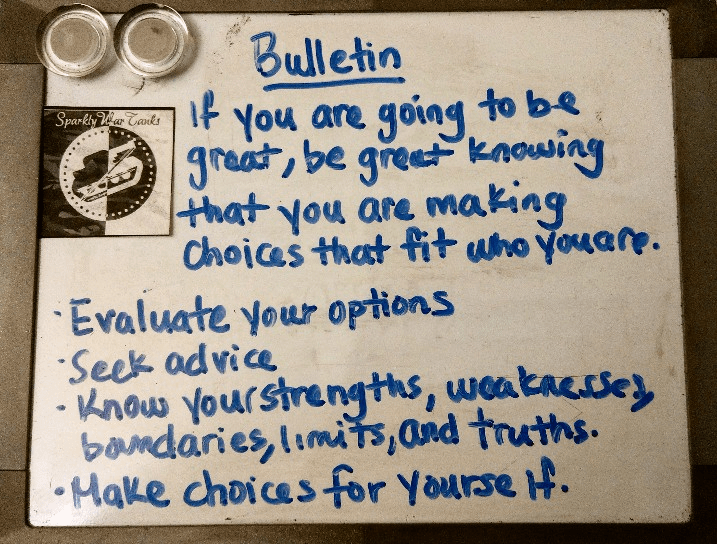 Bulletin
Sparkly War Tanks
If you are going to be
great, be great knowing
that you are making
choices that fit who you are.
· Evaluate your options
· Seek advice
· Know your strengths, weaknesses,
boundaries, limits, and truths.
· Make choices for yourself.